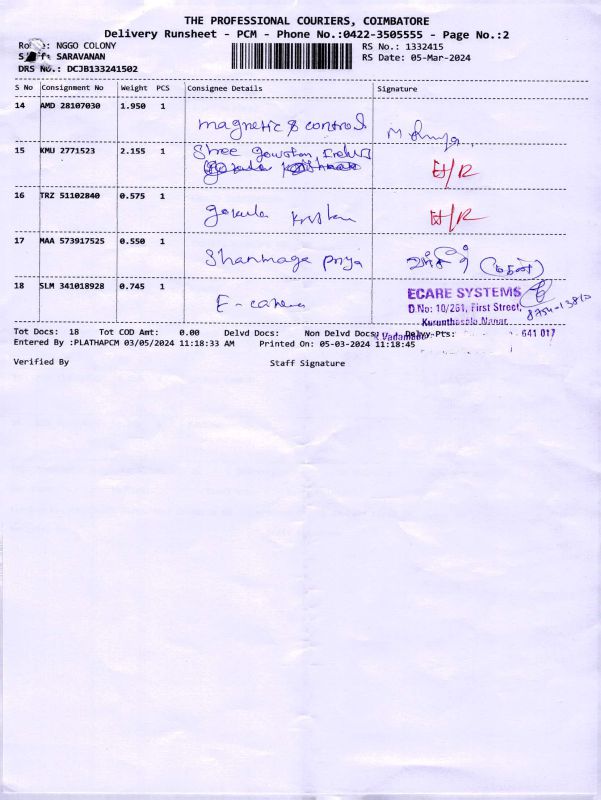 THE PROFESSIONAL COURIERS, COIMBATORE
Delivery Runsheet - PCM - Phone No.:0422-3505555 - Page No.:2
NGGO COLONY
SARAVANAN
DRS No.: DCJB133241502
RS No.: 1332415
RS Date: 05-Mar-2024
S No Consignment No Weight PCS Consignee Details Signature
14 AMD 28107030 1.950 1
magnetic & control
15 KMU 2771523 2.155 1
Shree
16 TRZ 51102840 0.575 1
gokula
17 MAA 573917525 0.550 1
Shanmaga priya
18 SLM 341018928 0.745 1
ECARE SYSTEMS
D.No: 10/261, First Street,
641 017
Tot Docs: 18 Tot COD Amt: 0.00 Delvd Docs: Non Delvd Docs: Pts:
Entered By :PLATHAPCM 03/05/2024 11:18:33 AM Printed On: 05-03-2024 11:18:45
Verified By Staff Signature